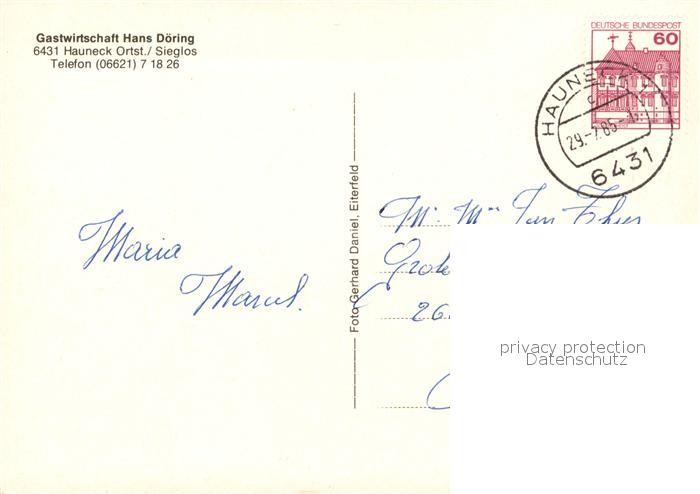 Gastwirtschaft Hans Döring
6431 Hauneck Ortst./ Sieglos
Telefon (06621) 7 18 26
DEUTSCHE BUNDESPOST
60
HAUNECK
29.-7.85
6431
Foto Gerhard Daniel, Eiterfeld
Maria
Marcel.
privacy protection
Datenschutz